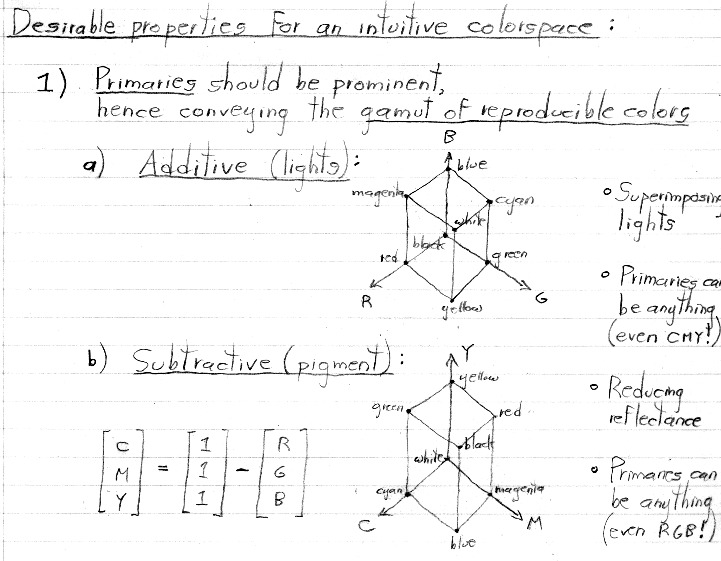 Desirable properties for an intuitive colorspace :
1) Primaries should be prominent,
hence conveying the gamut of reproducible colors
a) Additive (lights):
B
blue
magenta
cyan
white
black
red
green
R
G
yellow
• Superimposing
lights
• Primaries ca
be anything
(even CMY!)
b) Subtractive (pigment):
Y
yellow
green
red
black
white
cyan
magenta
C
M
blue
C 1 R
M = 1 - G
Y 1 B
• Reducing
reflectance
• Primaries can
be anything
(even RGB!)